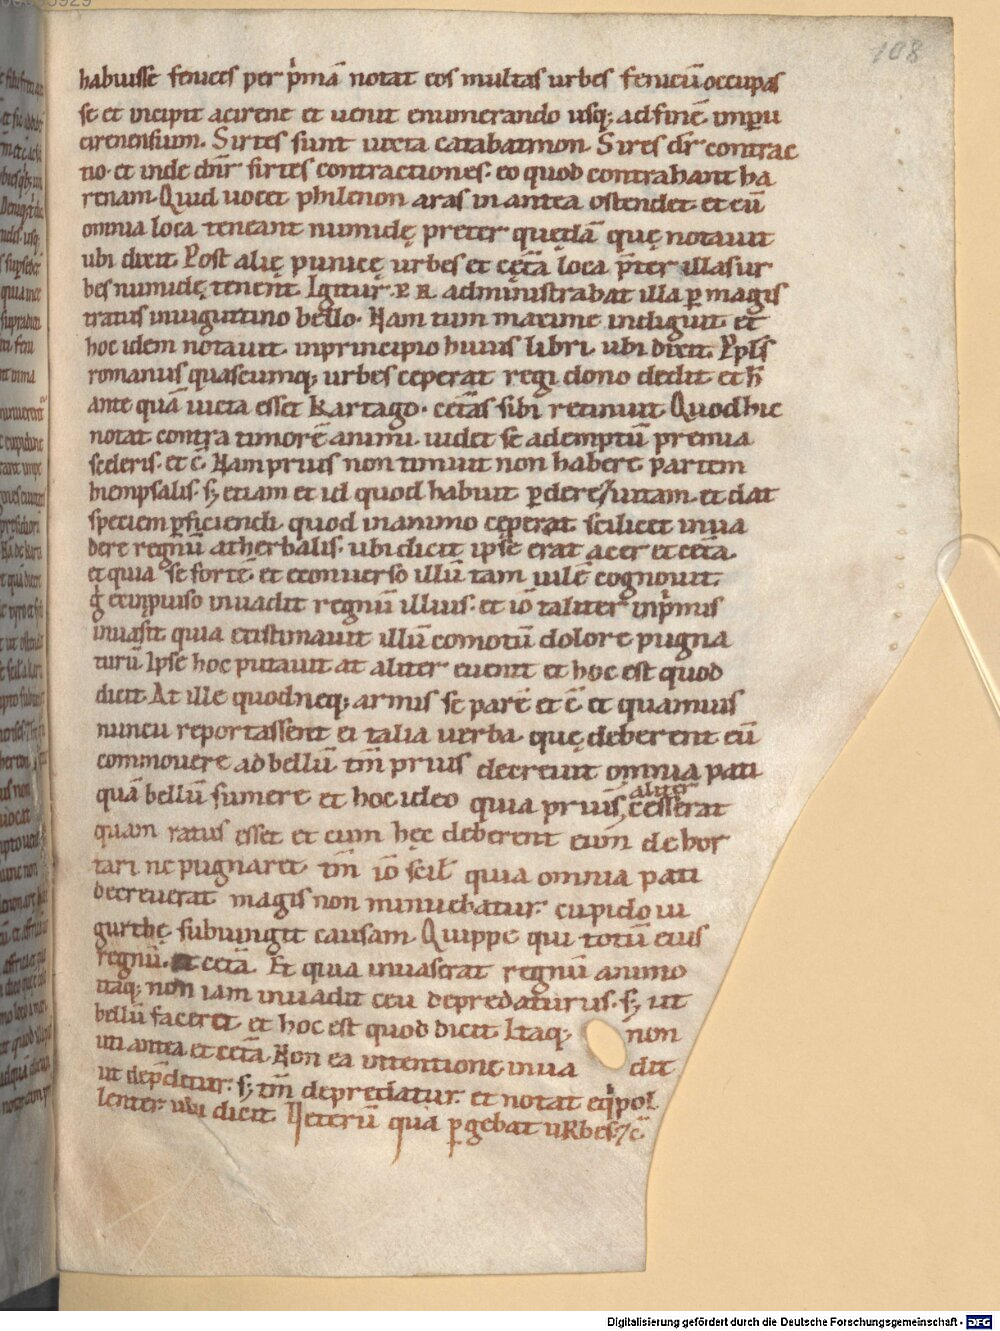 108
habuisse fenices per pͥmā notat eos multas urbes fenicū occupas
se et incipit acirene et uenit enumerando usq; ad finē impu
cirenensium. Sirtes sunt iuxta catabatmon. Sirtes dr̄ contrac
tio. et inde dn̄r sirtes contractiones. eo quod contrahant ha
renam. Quid uocet philenon aras in antea ostendet. et cū
omnia loca teneant numidę preter quędā quę notauit
ubi dixit. Post alię punicę urbes et cętā loca p̄ter illas ur
bes numidę tenent. Igitur .P. R. administrabat illa ꝑ magis
tratus iniugurtino bello. Nam tum maxime indiguit. et
hoc idem notauit. inprincipio huius libri. ubi dixit. Ppls̄
romanus quascumq; urbes ceperat regi dono dedit. et h̄
ante quā uicta esset Kartago. cętās sibi retinuit. Quod hic
notat contra timorē animi. uidet se ademptū premia
sceleris. et c̄. Nam prius non timuit non habere partem
hiempsalis. s; etiam et id quod habuit ꝑdere ⁊ uitam. et dat
speciem ꝑficiendi. quod inanimo cęperat scilicet inua
dere regnū atherbalis. ubi dicit ipse erat acer et cętā.
et quia se fortē. et econuerso illū tam uilē cognouit.
g͛ exinpuiso inuadit regnū illius. et iō taliter inpͥmis
inuasit quia existimauit illū comotū dolore pugna
turū. Ipse hoc putauit at aliter euenit et hoc est quod
dicit. At ille quod neq; armis se parē et c̄. et quamuis
nuncii reportassent ei talia uerba. quę deberent eū
commouere ad bellū. tm̄ prius decreuit omnia pati
quā bellū sumere et hoc ideo quia prius, aliter cesserat
quam ratus esset et cum hęc deberent eum dehor
tari ne pugnaret. tm̄ iō scil̄ quia omnia pati
decreuerat magis non minuebatur cupido iu
gurthę subiungit causam. Quippe qui totū eius
regnū. et cętā. Et quia inuaserat regnū animo
itaq; non iam inuadit ceu depredaturus. s; ut
bellū faceret. et hoc est quod dicit. Itaq; non
uti antea et cętā. Non ea intentione inua dit
ut dep̄detur. s; tm̄ deprediatur. et notat eqͥpol
lenter. ubi dicit. Ueterū quā ꝑgebat urbes. ⁊ c̄.
Digitalisierung gefördert durch die Deutsche Forschungsgemeinschaft - DFG